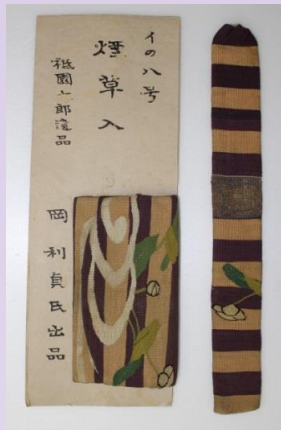 イの八号
煙草入
祇園小郎遺品
岡利貞氏出品